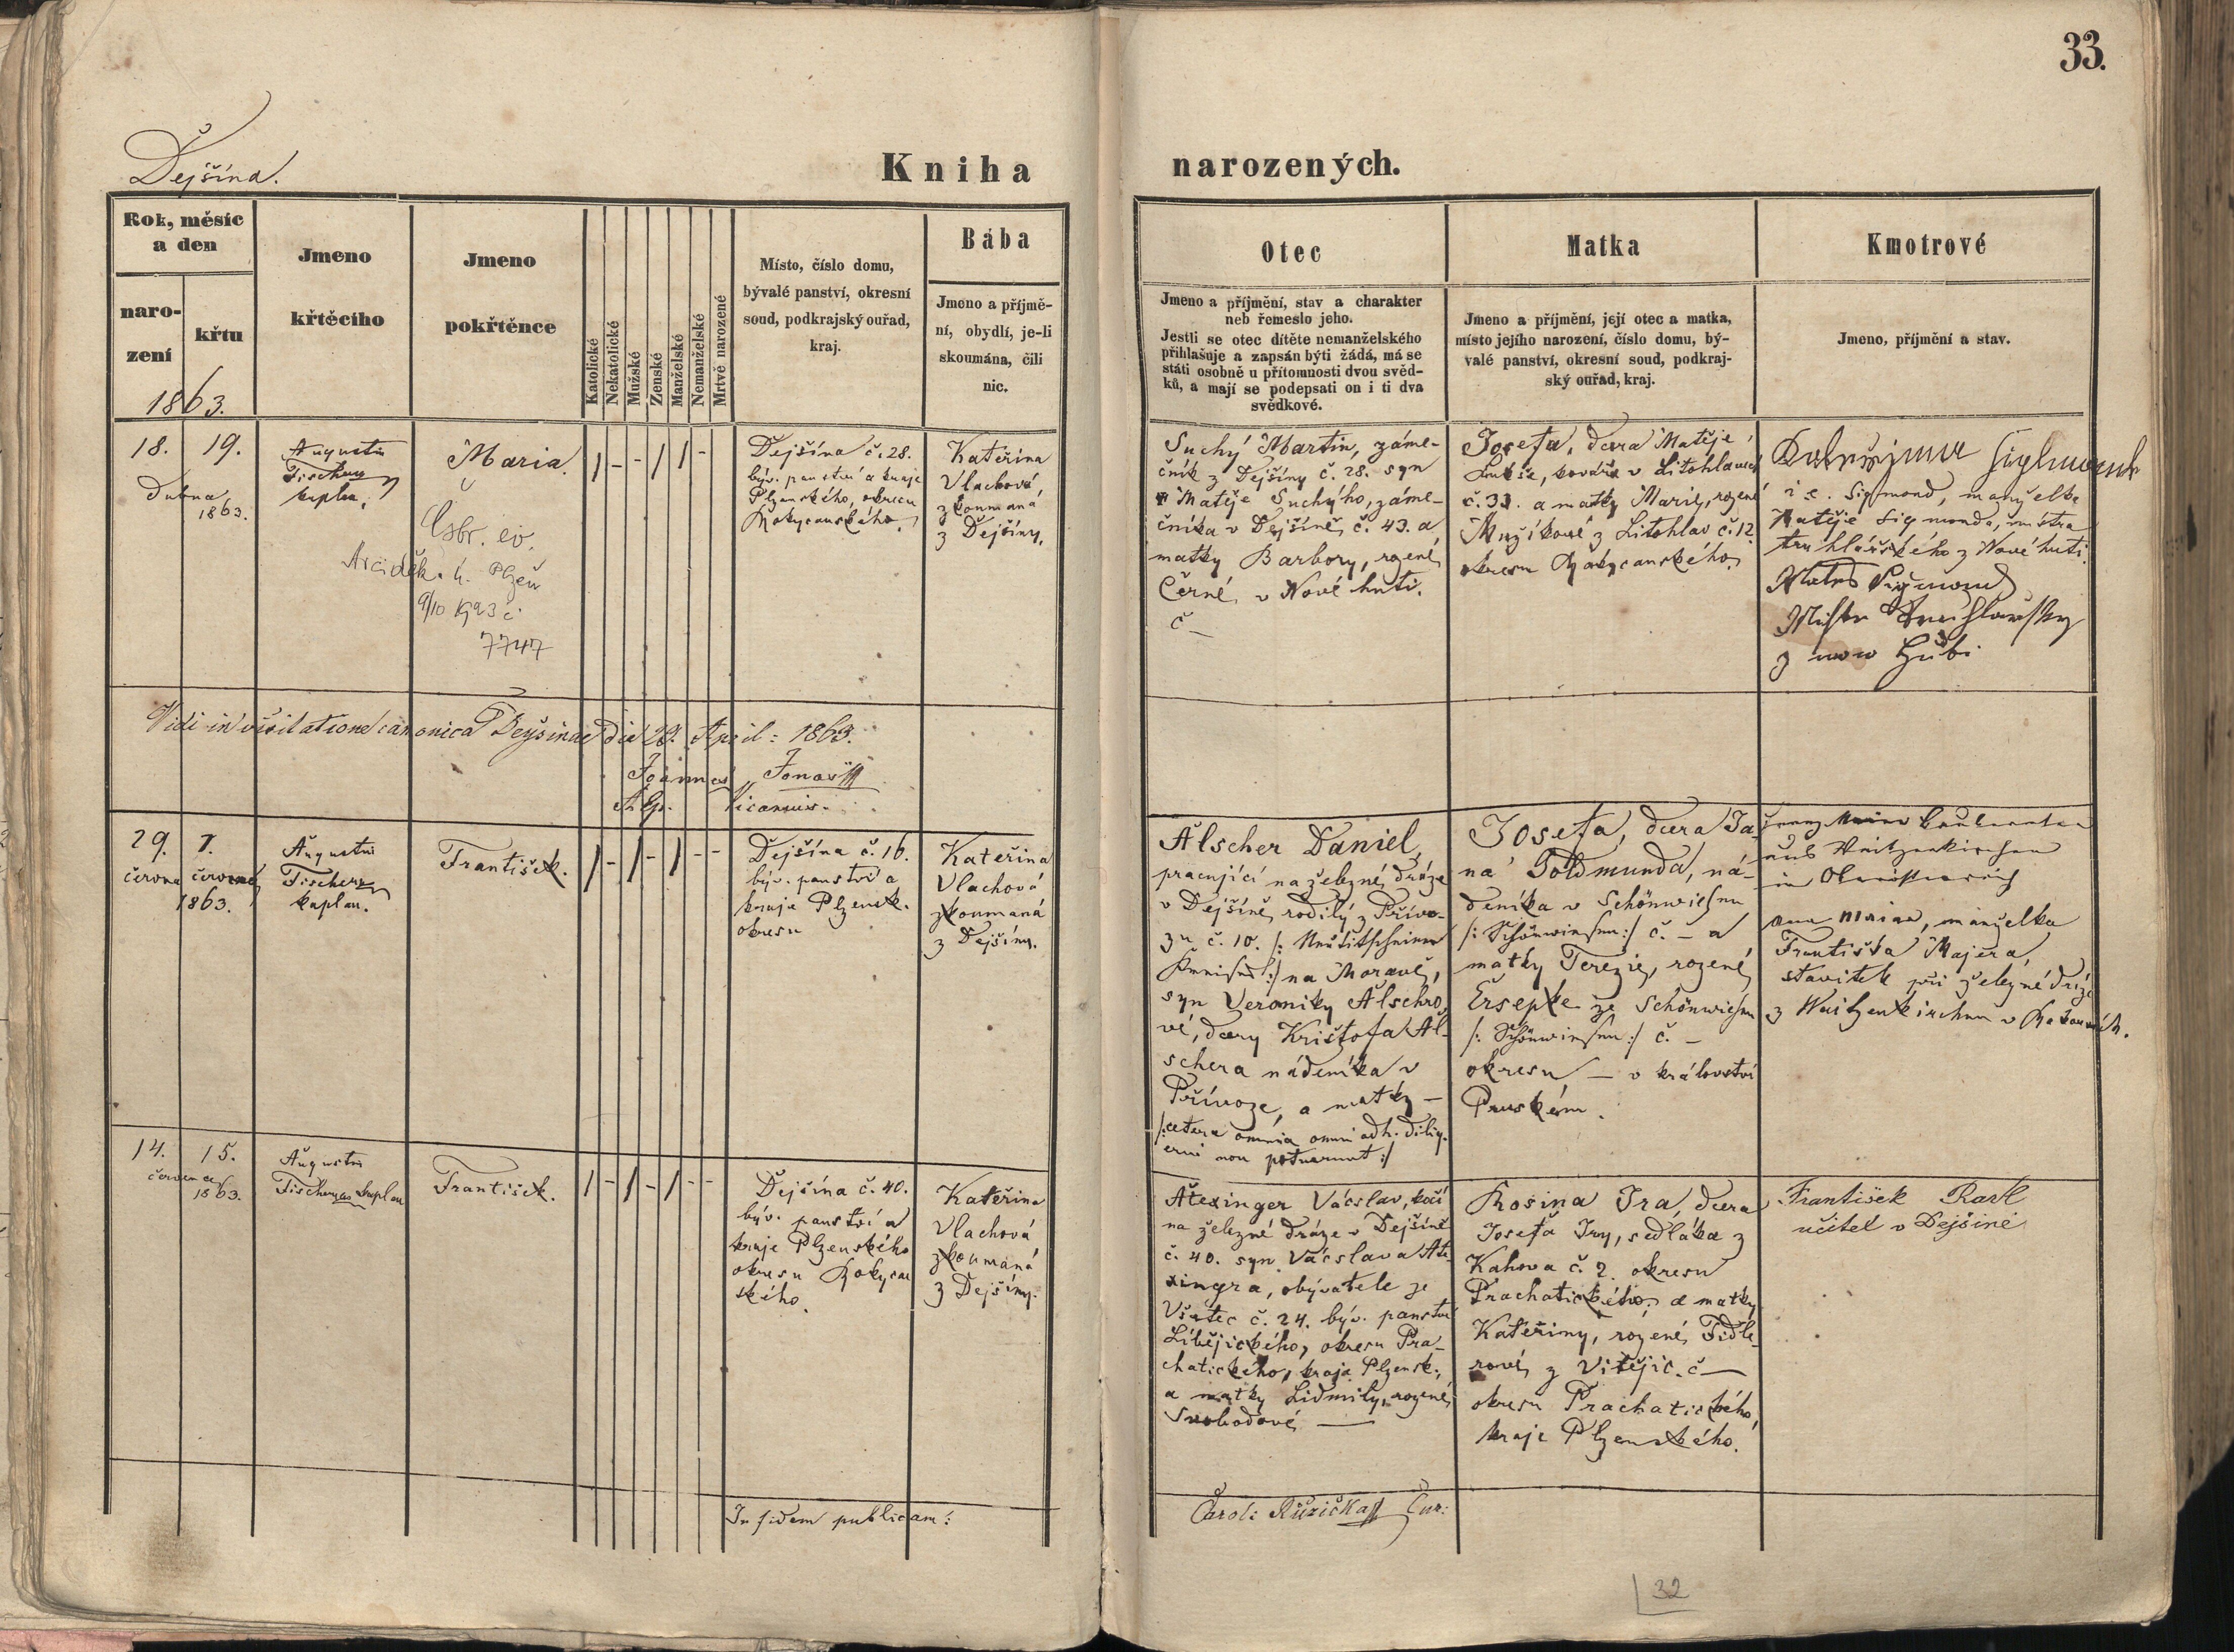 33.
Dejšína.
Kniha narozených.
Rok, měsíc
a den
naro-
zení
křtu
1863.
Jmeno
křtěcího
Jmeno
pokřtěnce
Katolické
Nekatolické
Mužské
Zenské
Manželské
Nemanželské
Mrtvě narozené
Místo, číslo domu,
bývalé panství, okresní
soud, podkrajský ouřad,
kraj.
Bába
Jmeno a příjmě-
ní, obydlí, je-li
skoumána, čili
nic.
Otec
Jmeno a příjmění, stav a charakter
neb řemeslo jeho.
Jestli se otec dítěte nemanželského
přihlašuje a zapsán býti žádá, má se
státi osobně u přítomnosti dvou svěd-
ků, a mají se podepsati on i ti dva
svědkové.
Matka
Jmeno a příjmění, její otec a matka,
místo jejího narození, číslo domu, bý-
valé panství, okresní soud, podkraj-
ský ouřad, kraj.
Kmotrové
Jmeno, příjmění a stav.
18. 19.
Dubna
1863.
Augustin
Fischer
kaplan.
Maria.
Arciděk. ú. Plzeň
9/10 1923 č
7747
1 – – 1 1 –
Dejšína č. 28.
býv. panství a kraje
Plzenského, okresu
Rokycanského.
Kateřina
Vlachová
zkoumaná
z Dejšíny.
Suchý Martin, záme-
čník z Dejšíny č. 28. syn
Matěje Suchýho, záme-
čníka v Dejšíně č. 43. a
matky Barbory, rozené
Černé v Nové huti.
č –
Josefa, dcera Matěje
kováře v Litohlavech
č. 33. a matky Marie, rozené
Mužíkové z Litohlav č. 12
okresu Rokycanského.
Siglmund
i.e. Sigmond, manželka
Matěje Sigmonda, mistra
truhlářského z Nové huti
Vidi in visitatione canonica Dejšinae die 28. April: 1863.
Joannes Jonas
Vicarius.
29. 1.
června července
1863.
Augustin
Fischer
kaplan.
František.
1 – 1 – 1 – –
Dejšína č. 16.
býv. panství a
kraje Plzensk.
okresu
Kateřina
Vlachová
zkoumaná
z Dejšíny.
Alscher Daniel,
pracující na železné dráze
v Dejšíně, rodilý z Přívo-
zu č. 10.
na Moravě,
syn Veroniky Alschro-
vé, dcery Krištofa Al-
schera nádeníka v
Přívoze, a matky –
/:cetera omnia omni adh. dilig.
erui non potuerunt:/
Josefa, dcera Ja-
na Goldmunda, ná-
deníka v Schönwiesen
/: Schönwiesen :/ č. – a
matky Terezie, rozené
Ersepke ze Schönwiesen
/: Schönwiesen :/ č. –
okresu – v království
Pruském.
manželka
Františka Majera,
stavitele při železné dráze
z Waitzenkirchen v Rakousích.
14. 15.
července
1863.
Augustin
Fischer kaplan
František.
1 – 1 – 1 – –
Dejšína č. 40.
býv. panství a
kraje Plzenského
okresu Rokycan
ského.
Kateřina
Vlachová
zkoumaná
z Dejšíny.
Atexinger Vácslav, kočí
na železné dráze v Dejšíně
č. 40. syn Vácslava Ate-
xingra, obývatele ze
Všetec č. 24. býv. panství
Libějického, okresu Pra-
chatického, kraje Plzensk.,
a matky Lidmily, rozené
Svobodové –
Rosina Ira, dcera
Josefa Iry, sedláka z
Kahova č. 2. okresu
Prachatického, a matky
Kateřiny, rozené Fidle-
rové z Vitějic. č –
okresu Prachatického,
kraje Plzenského.
František Pavl
učitel v Dejšině
In fidem publicam:
Carol: Růžička Cur:
32